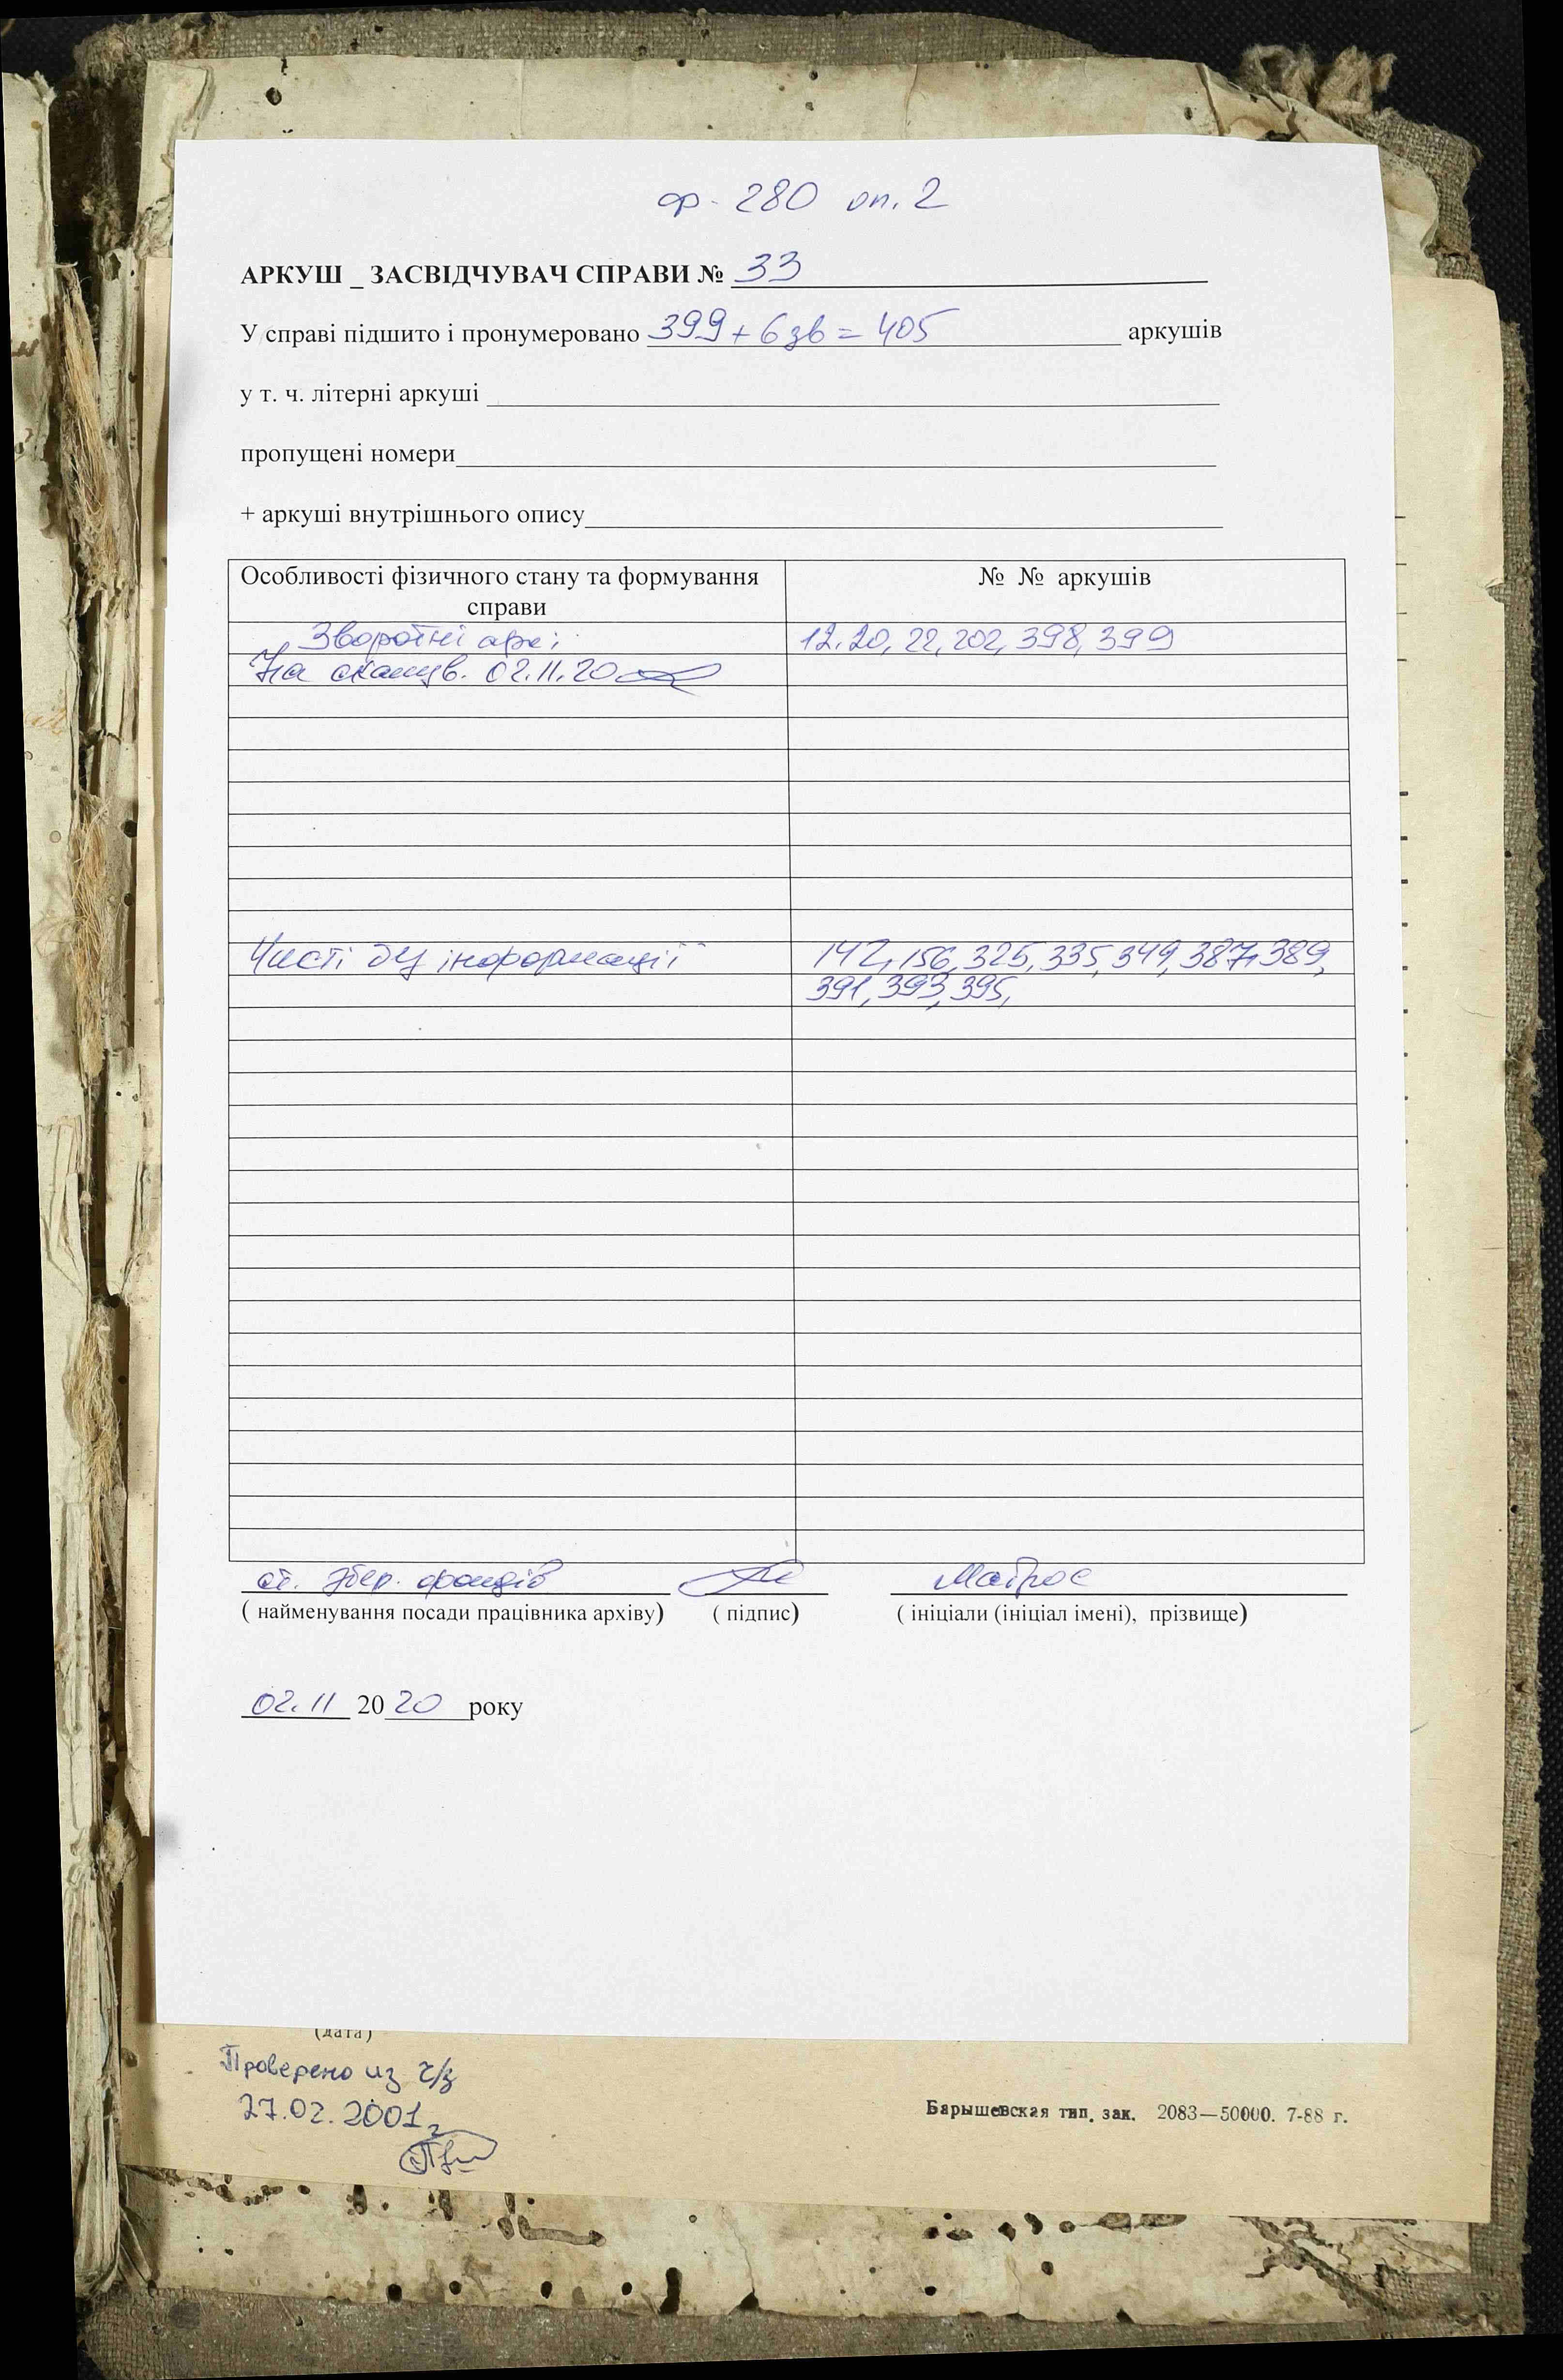 ф. 280 оп. 2
АРКУШ _ ЗАСВІДЧУВАЧ СПРАВИ № 33
У справі підшито і пронумеровано 399 + 6 зв = 405 аркушів
у т. ч. літерні аркуші
пропущені номери
+ аркуші внутрішнього опису
Особливості фізичного стану та формування справи
№ № аркушів
Зворотні арк: 12. 20, 22, 202, 398, 399
На сканув. 02.11.20
Чисті без інформації 142, 156, 325, 335, 349, 387, 389,
391, 393, 395,
ст. збер. фондів Матрос
( найменування посади працівника архіву) ( підпис) ( ініціали (ініціал імені), прізвище)
02.11 2020 року
(дата)
Проверено из ч/з
27.02.2001г
Барышевская тип. зак. 2083—50000. 7-88 г.